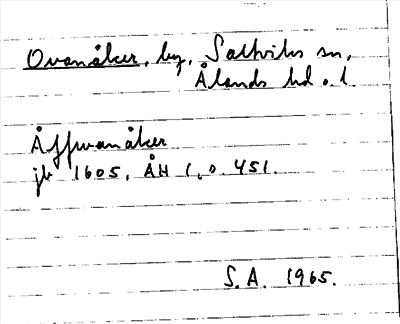 Ovanåker, by, Saltviks sn,
Ålands hd o. l.
Åffwanåker
jb 1605, ÅH 1, s. 451.
S.A. 1965.